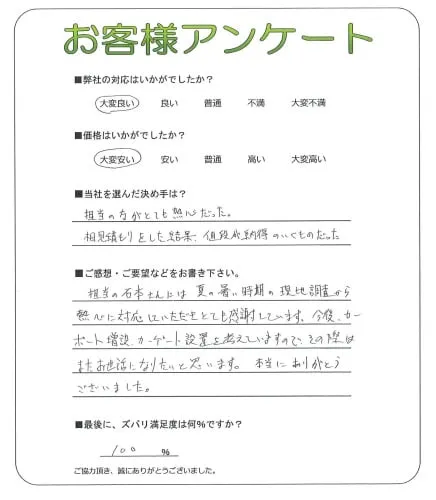 お客様アンケート
■弊社の対応はいかがでしたか？
大変良い 良い 普通 不満 大変不満
■価格はいかがでしたか？
大変安い 安い 普通 高い 大変高い
■当社を選んだ決め手は？
担当の方がとても熱心だった。
相見積もりをした結果、値段が納得のいくものだった
■ご感想・ご要望などをお書き下さい。
担当の石本さんには夏の暑い時期の現地調査から
熱心に対応していただきとても感謝しています。今後、カー
ポート増設、カーゲート設置を考えていますので、その際は
またお世話になりたいと思います。本当にありがとう
ございました。
■最後に、ズバリ満足度は何%ですか？
100 %
ご協力頂き、誠にありがとうございました。